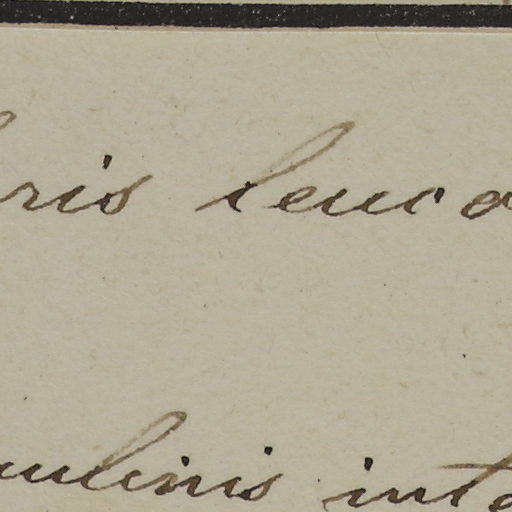 ris leuco
ulinis inte